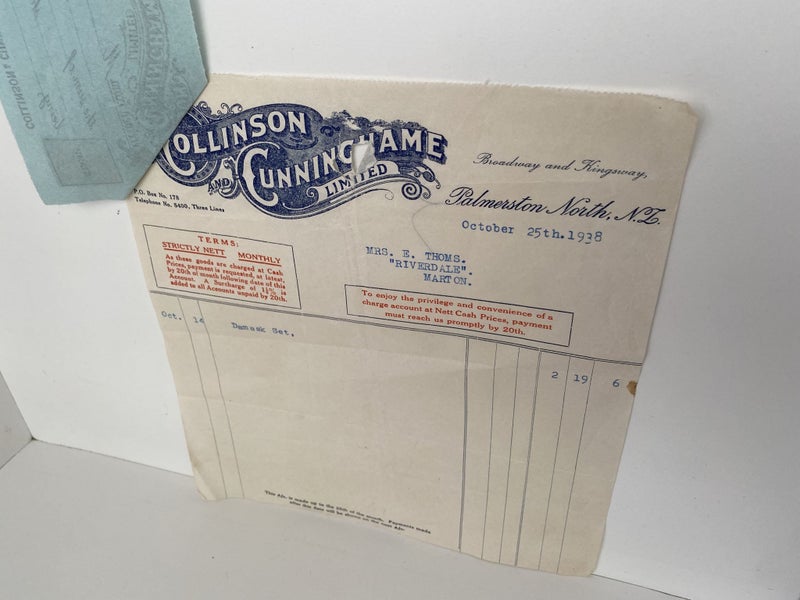 COLLINSON & CU
LIMITED
COLLINSON
AND CUNNINGHAME
LIMITED
P.O. Box No. 178
Telephone No. 5400, Three Lines
Broadway and Kingsway,
Palmerston North, N.Z.
October 25th.1938
MRS. E. THOMS.
"RIVERDALE".
MARTON.
TERMS:
STRICTLY NETT MONTHLY
As these goods are charged at Cash
Prices, payment is requested, at latest,
by 20th of month following date of this
Account. A Surcharge of 1½% is
added to all Accounts unpaid by 20th.
To enjoy the privilege and convenience of a
charge account at Nett Cash Prices, payment
must reach us promptly by 20th.
Oct. 14 Damask Set. 2 19 6
This A/c. is made up to the 25th of the month. Payments made
after this date will be shown on the next A/c.